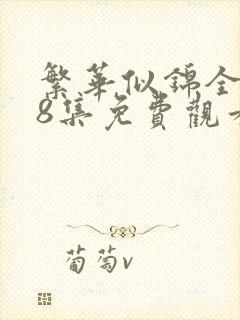 繁華似錦全
8集免費觀看
葡萄v